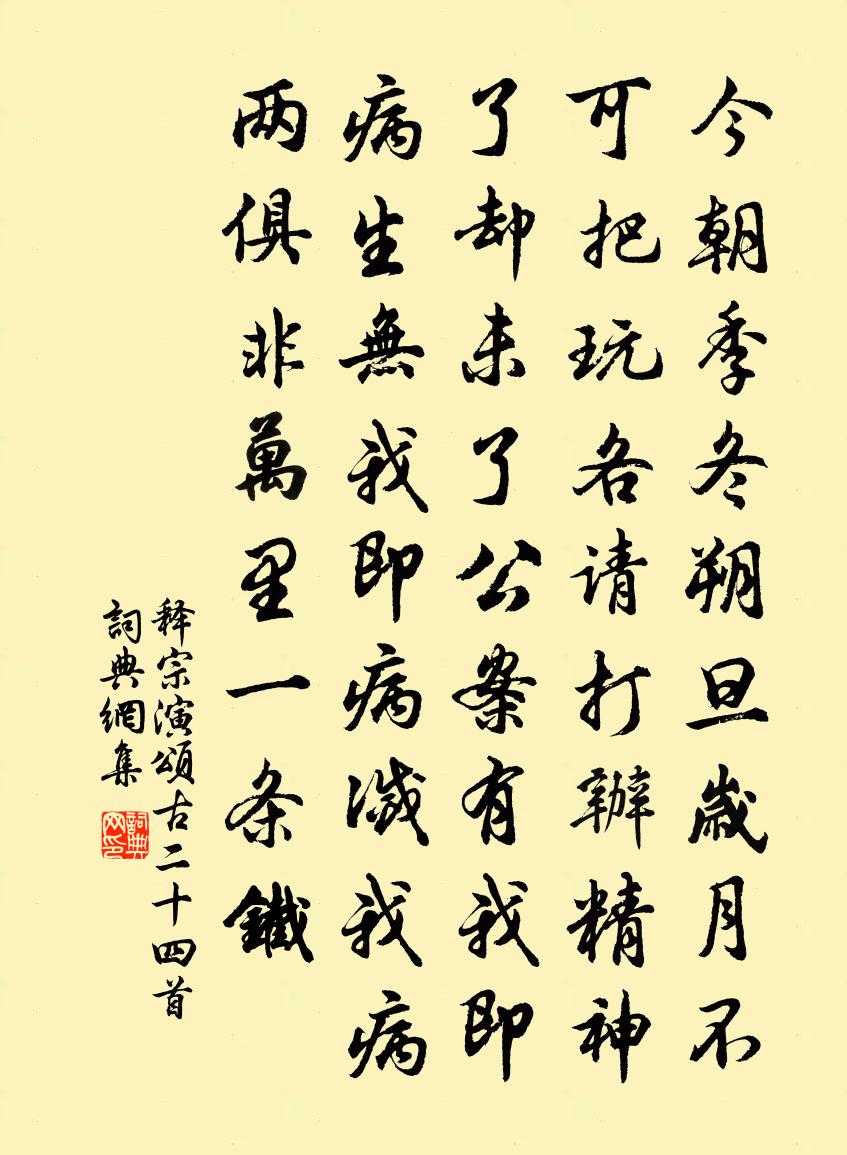 今朝季冬朔旦歲月不
可把玩各请打辦精神
了却未了公案有我即
病生無我即病滅我病
两俱非萬里一条鐵
释宗演頌古二十四首
詞典網集
詞典网印